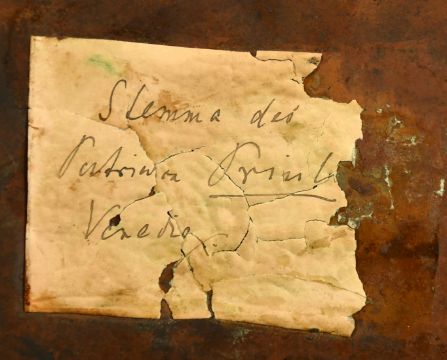 Stemma des
Patrizier Priul
Venedig